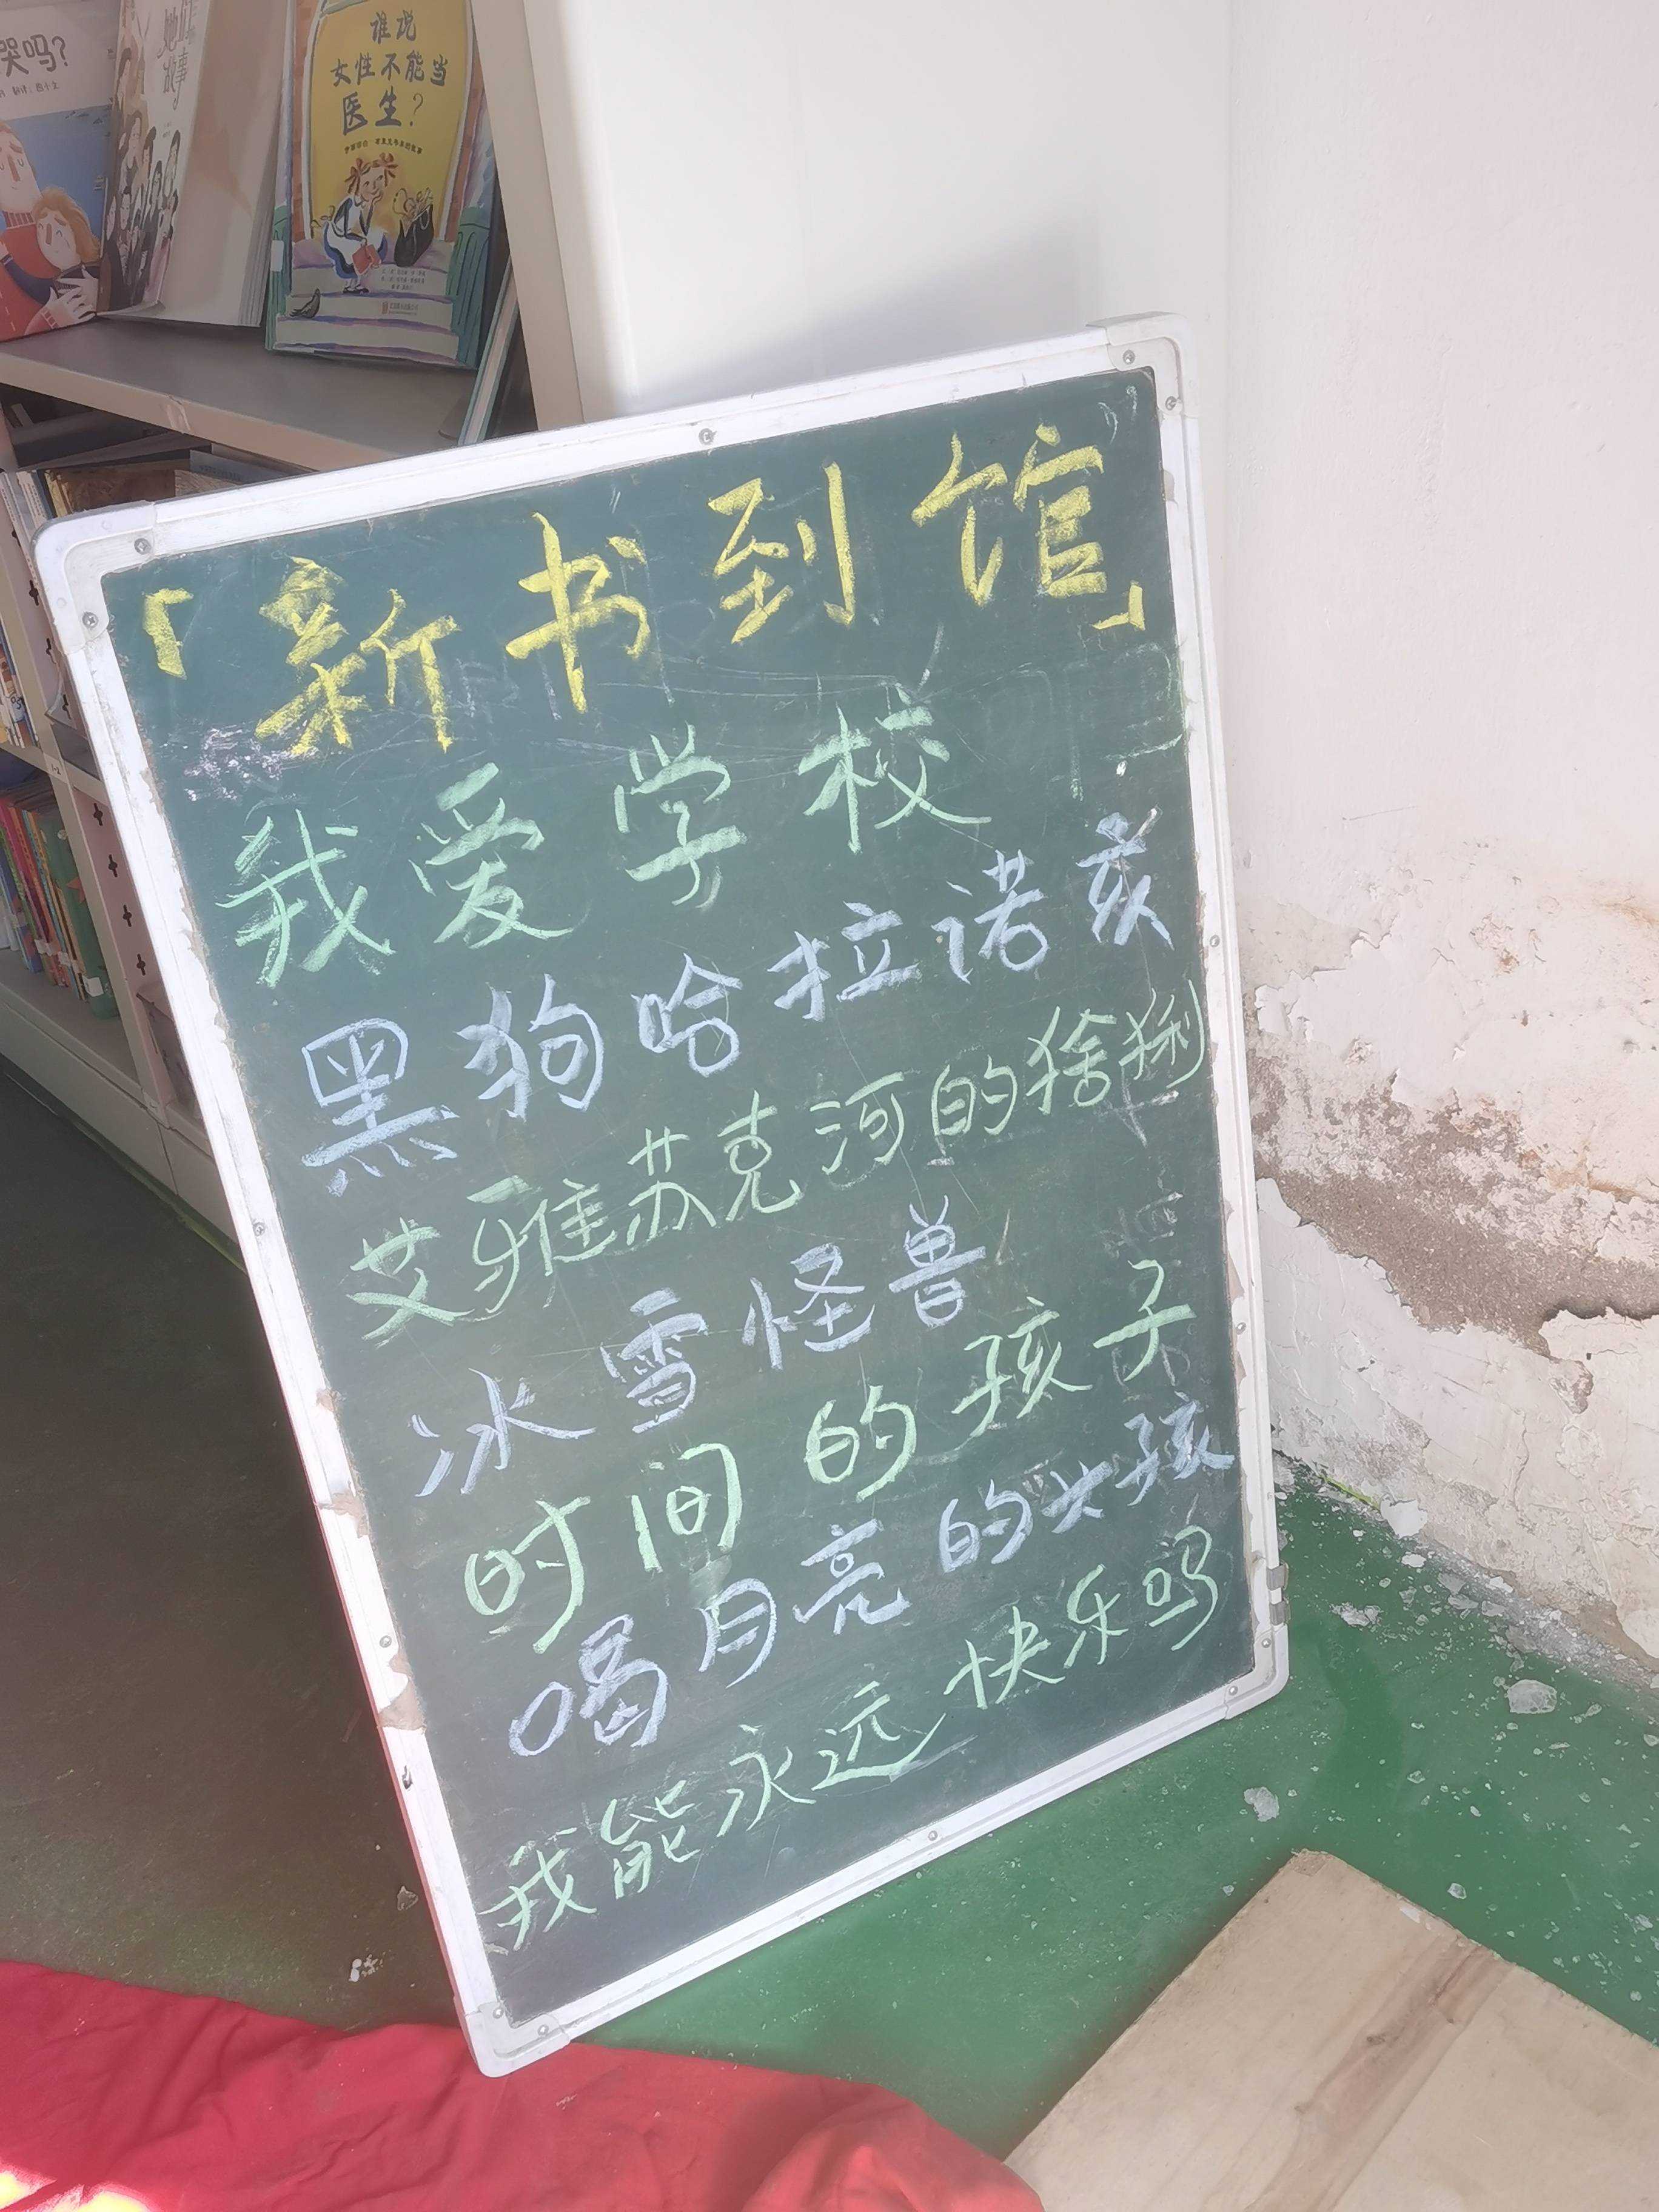 哭吗?
她们的
故事
谁说
女性不能当
医生?
「新书到馆」
我爱学校
黑狗哈拉诺亥
艾雅苏克河的猞猁
冰雪怪兽
时间的孩子
喝月亮的女孩
我能永远快乐吗